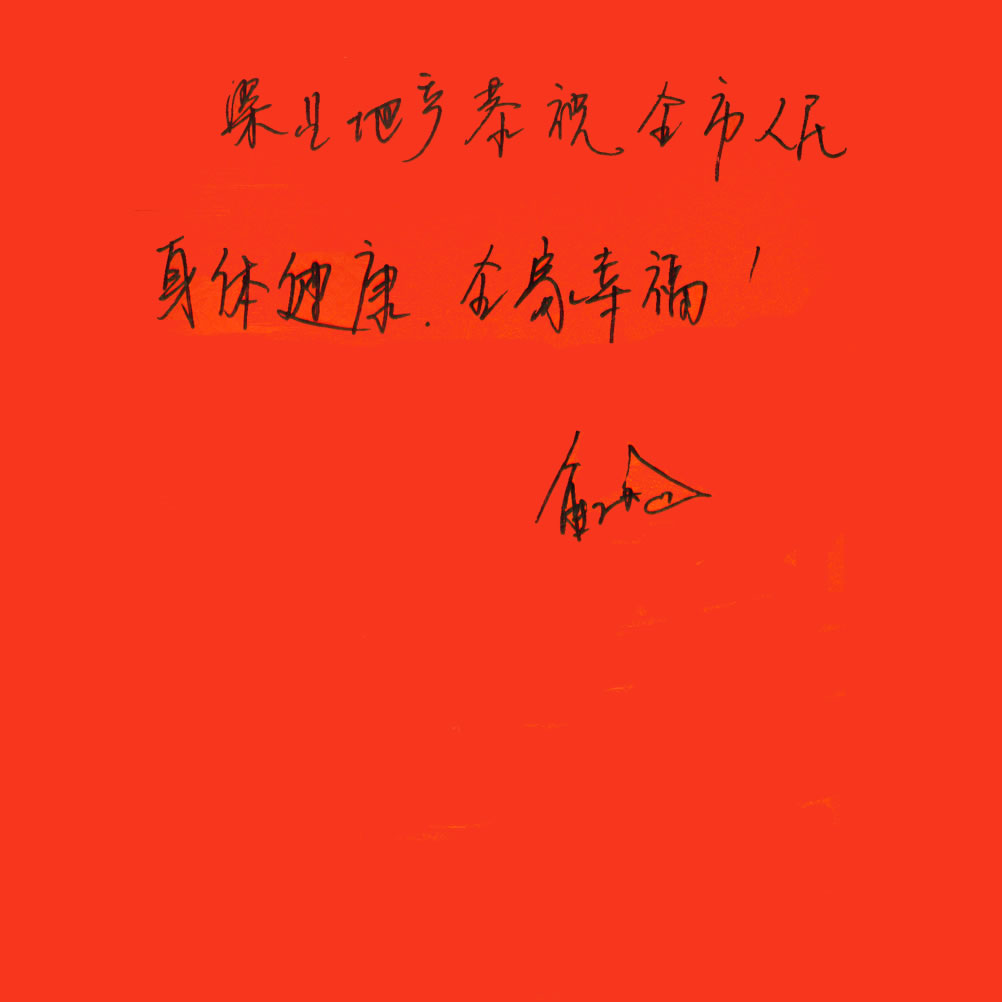 地产恭祝全市人民
身体健康.全家幸福!